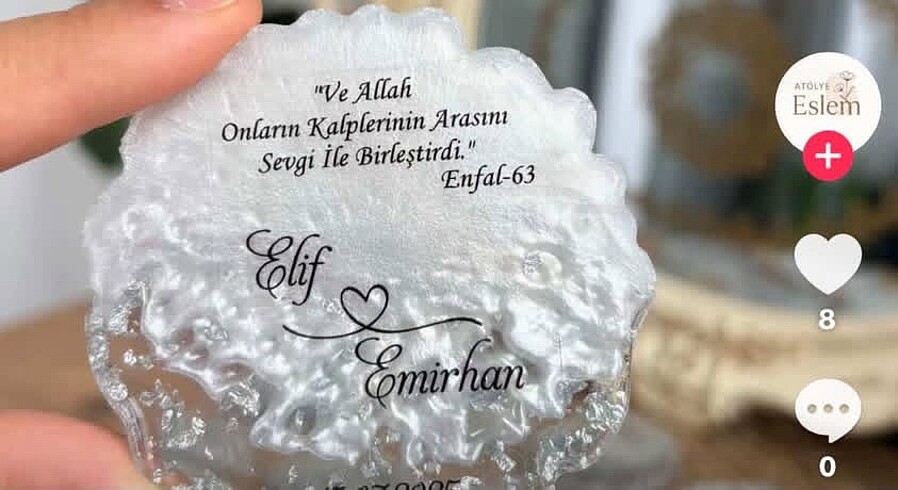 "Ve Allah
Onların Kalplerinin Arasını
Sevgi İle Birleştirdi."
Enfal-63
Elif
Emirhan
ATÖLYE
Eslem
8
0